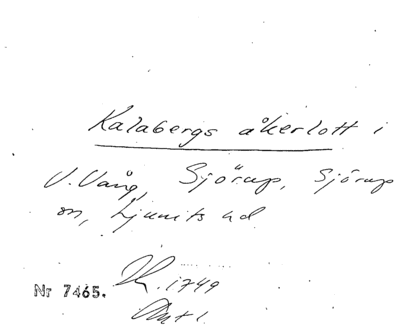 Kalabergs åkerlott i
V. Vång, Sjörup, Sjörup
sn, Ljunits hd
1749
Nr 7465.